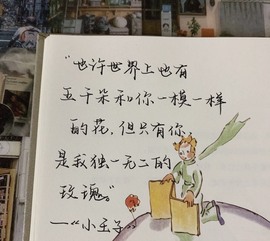 “也许世界上也有
五千朵和你一模一样
的花，但只有你，
是我独一无二的
玫瑰。”
—“小王子”